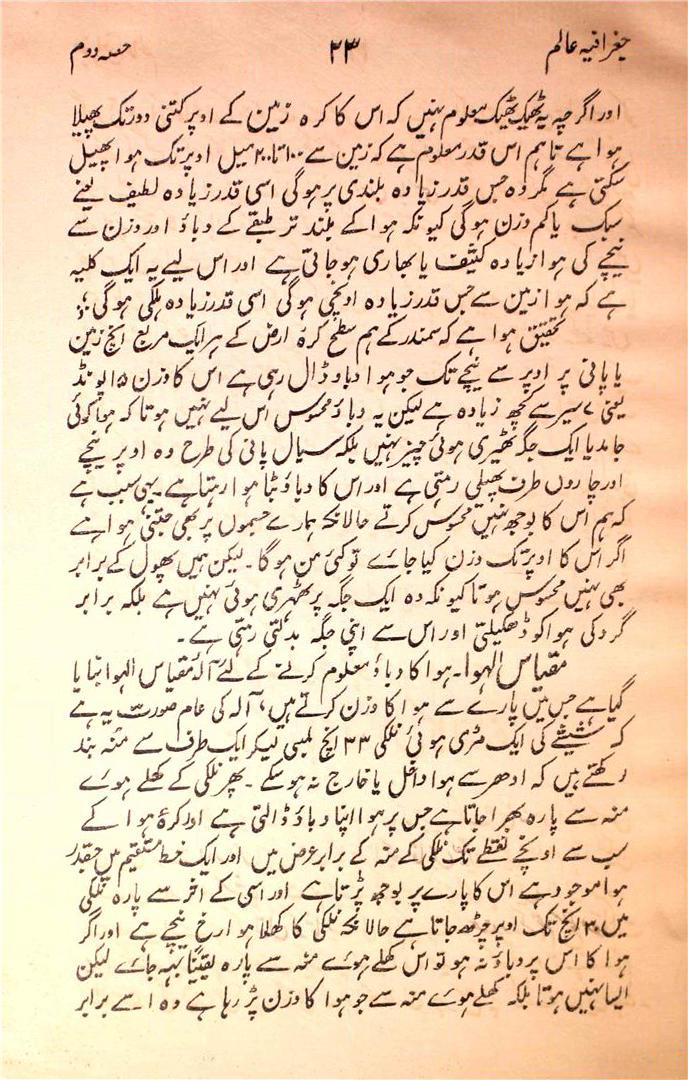 جغرافیہ عالم ۲۳ حصہ دوم
اور اگرچہ یہ ٹھیک ٹھیک معلوم نہیں کہ اس کا کرہ زمین کے اوپر کتنی دور تک پھیلا
ہوا ہے تاہم اس قدر معلوم ہے کہ زمین سے ۱۰۰ تا ۲۰۰ میل اوپر تک ہوا پھیل
سکتی ہے مگر وہ جس قدر زیادہ بلندی پر ہوگی اسی قدر زیادہ لطیف یعنے
سبک یا کم وزن ہوگی کیونکہ ہوا کے بلند تر طبقے کے دباؤ اور وزن سے
نیچے کی ہوا زیادہ کثیف یا بھاری ہو جاتی ہے اور اس لیے یہ ایک کلیہ
ہے کہ ہوا زمین سے جس قدر زیادہ اونچی ہوگی اسی قدر زیادہ ہلکی ہوگی؛
تحقیق ہوا ہے کہ سمندر کے ہم سطح کرۂ ارض کے ہر ایک مربع انچ زمین
یا پانی پر اوپر سے نیچے تک جو ہوا دباؤ ڈال رہی ہے اس کا وزن ۱۵ پونڈ
یعنی ۷ سیر سے کچھ زیادہ ہے لیکن یہ دباؤ محسوس اس لیے نہیں ہوتا کہ ہوا کوئی
جامد یا ایک جگہ ٹھیری ہوئی چیز نہیں بلکہ سیال پانی کی طرح وہ اوپر نیچے
اور چاروں طرف پھیلی رہتی ہے اور اس کا دباؤ بٹا ہوا رہتا ہے۔ یہی سبب ہے
کہ ہم اس کا بوجھ نہیں محسوس کرتے حالانکہ ہمارے جسموں پر بھی جتنی ہوا ہے
اگر اس کا اوپر تک وزن کیا جائے تو کئی من ہوگا۔ لیکن ہمیں پھول کے برابر
بھی نہیں محسوس ہوتا کیونکہ وہ ایک جگہ پر ٹھہری ہوئی نہیں ہے بلکہ برابر
گرد کی ہوا کو ڈھکیلتی اور اس سے اپنی جگہ بدلتی رہتی ہے۔
مقیاس الہوا۔ ہوا کا دباؤ معلوم کرنے کے لئے آلۂ مقیاس الہوا بنایا
گیا ہے جس میں پارے سے ہوا کا وزن کرتے ہیں، آلہ کی عام صورت یہ ہے
کہ شیشے کی ایک مڑی ہوئی نلکی ۳۳ انچ لمبی لیکر ایک طرف سے منہ بند
رکھتے ہیں کہ ادھر سے ہوا داخل یا خارج نہ ہو سکے۔ پھر نلکی کے کھلے ہوے
منہ سے پارہ بھرا جاتا ہے جس پر ہوا اپنا دباؤ ڈالتی ہے اور کرۂ ہوا کے
سب سے اونچے نقطے تک نلکی کے منہ کے برابر عرض میں اور ایک خط مستقیم میں جسقدر
ہوا موجود ہے اس کا پارے پر بوجھ پڑتا ہے اور اسی کے اثر سے پارہ نلکی
میں ۳۰ انچ تک اوپر چڑھ جاتا ہے حالانکہ نلکی کا کھلا ہوا رخ نیچے ہے اور اگر
ہوا کا اس پر دباؤ نہ ہو تو اس کھلے ہوے منہ سے پارہ یقیناً بہہ جاے لیکن
ایسا نہیں ہوتا بلکہ کھلے ہوے منہ سے جو ہوا کا وزن پڑ رہا ہے وہ اسے برابر